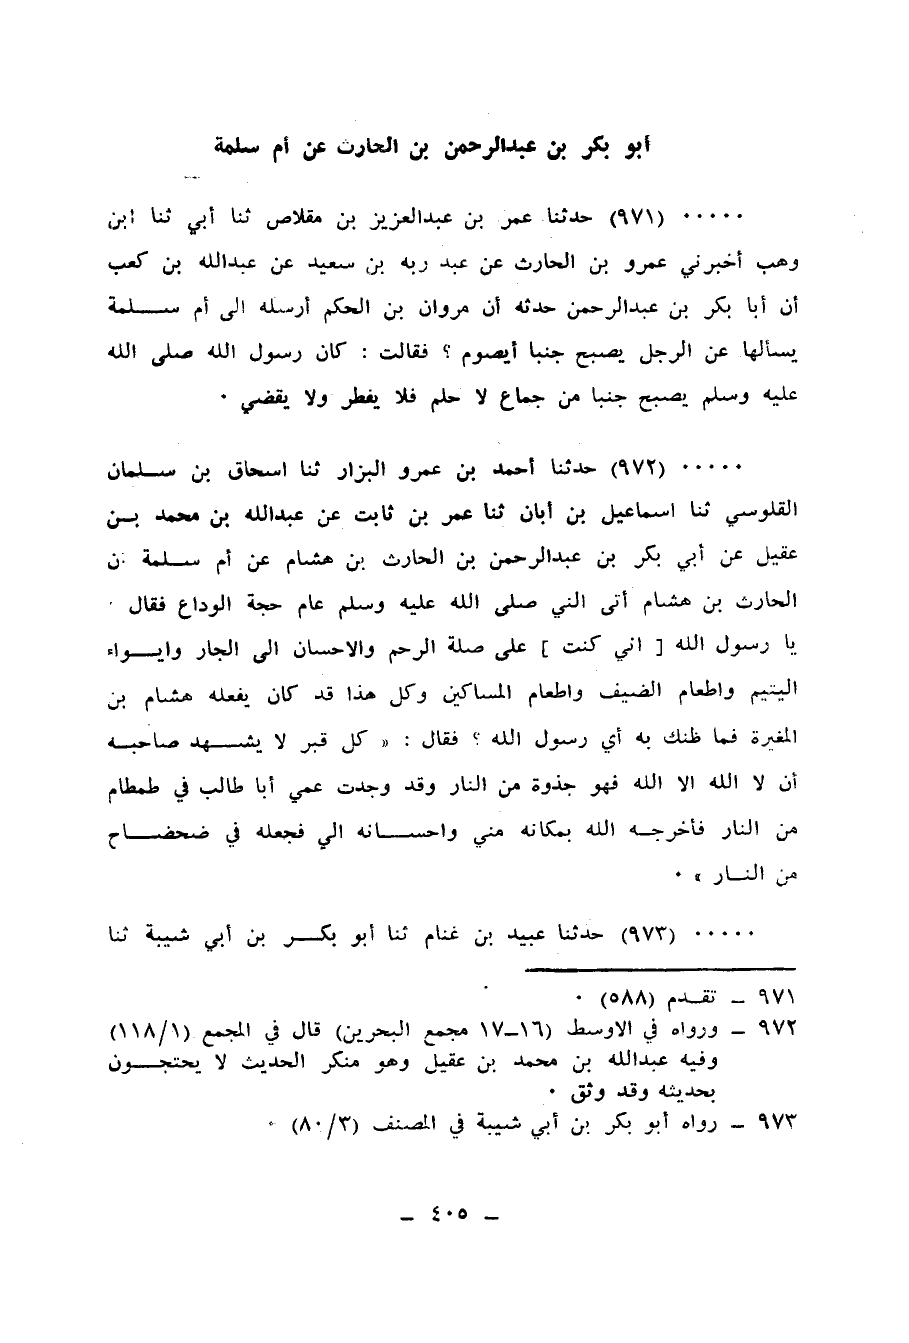 أبو بكر بن عبدالرحمن بن الحارث عن أم سلمة
٠٠٠٠٠ (٩٧١) حدثنا عمر بن عبدالعزيز بن مقلاص ثنا أبي ثنا ابن
وهب أخبرني عمرو بن الحارث عن عبد ربه بن سعيد عن عبدالله بن كعب
أن أبا بكر بن عبدالرحمن حدثه أن مروان بن الحكم أرسله الى أم سـلمة
يسألها عن الرجل يصبح جنبا أيصوم ؟ فقالت : كان رسول الله صلى الله
عليه وسلم يصبح جنبا من جماع لا حلم فلا يفطر ولا يقضي ٠
٠٠٠٠٠ (٩٧٢) حدثنا أحمد بن عمرو البزار ثنا اسحاق بن سـلمان
القلوسي ثنا اسماعيل بن أبان ثنا عمر بن ثابت عن عبدالله بن محمد بـن
عقيل عن أبي بكر بن عبدالرحمن بن الحارث بن هشام عن أم سـلمة ن
الحارث بن هشام أتى النبي صلى الله عليه وسلم عام حجة الوداع فقال
يا رسول الله [ اني كنت ] على صلة الرحم والاحسان الى الجار وايـواء
اليتيم واطعام الضيف واطعام المساكين وكل هذا قد كان يفعله هشام بن
المغيرة فما ظنك به أي رسول الله ؟ فقال : « كل قبر لا يشـهد صاحبـه
أن لا الله الا الله فهو جذوة من النار وقد وجدت عمي أبا طالب في طمطام
من النار فأخرجـه الله بمكانه مني واحسـانه الي فجعله في ضحضـاح
من النـار » ٠
٠٠٠٠٠ (٩٧٣) حدثنا عبيد بن غنام ثنا أبو بكـر بن أبي شيبة ثنا
٩٧١ ـ تقـدم (٥٨٨) ٠
٩٧٢ ـ ورواه في الاوسط (١٦ـ١٧ مجمع البحرين) قال في المجمع (١١٨/١)
وفيه عبدالله بن محمد بن عقيل وهو منكر الحديث لا يحتجـون
بحديثه وقد وثق ٠
٩٧٣ ـ رواه أبو بكر بن أبي شيبة في المصنف (٨٠/٣) ٠
ـ ٤٠٥ ـ